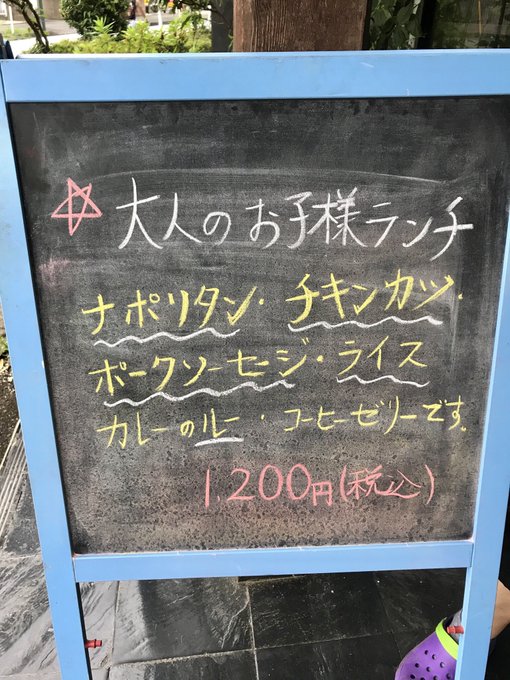 ☆ 大人のお子様ランチ
ナポリタン・チキンカツ・
ポークソーセージ・ライス
カレーのルー・コーヒーゼリーです。
1,200円(税込)